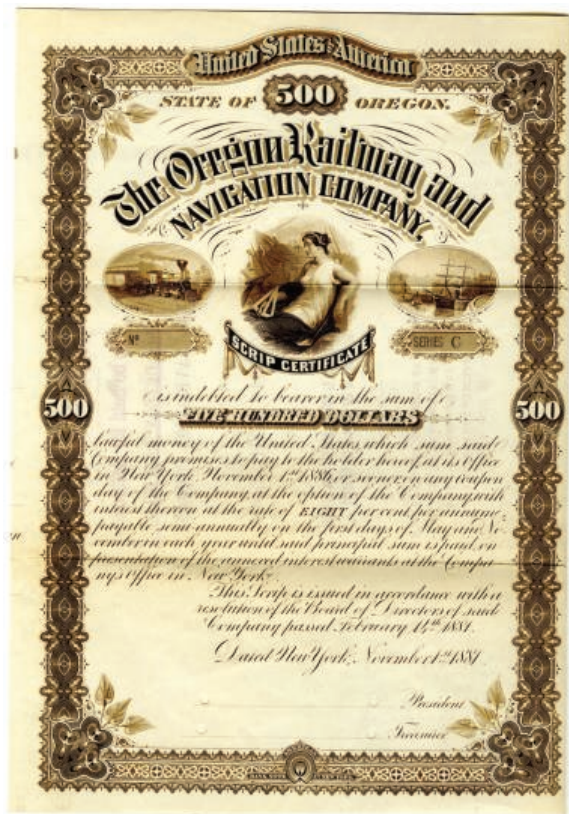 United States of America
STATE OF 500 OREGON.
The Oregon Railway and
NAVIGATION COMPANY,
Nº
SERIES C
SCRIP CERTIFICATE
is indebted to bearer in the sum of
500
500
FIVE HUNDRED DOLLARS
lawful money of the United States which sum said
Company promises to pay to the holder hereof, at its Office
in New York November 1st 1886, or sooner, on any coupon
day of the Company, at the option of the Company, with
interest thereon at the rate of EIGHT per cent. per annum,
payable semi-annually on the first days of May and No-
vember in each year until said principal sum is paid, on
presentation of the annexed interest warrants at the Compa-
ny's Office in New York.
This Scrip is issued in accordance with a
resolution of the Board of Directors of said
Company passed February 14th 1881.
Dated New York, November 1st 1881
President
Treasurer